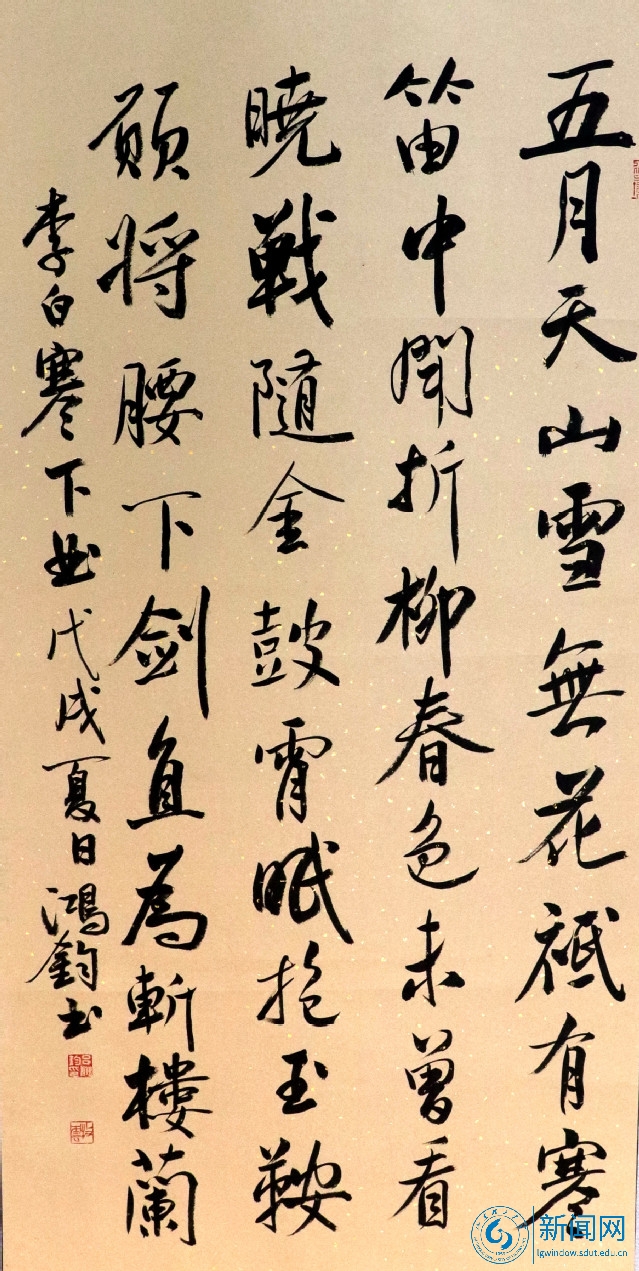 五月天山雪無花祇有寒
笛中聞折柳春色未曾看
曉戰隨金鼓霄眠抱玉鞍
願將腰下劍直為斬樓蘭
李白寒下曲戊戌夏日鴻鈞书
新闻网
lgwindow.sdut.edu.cn